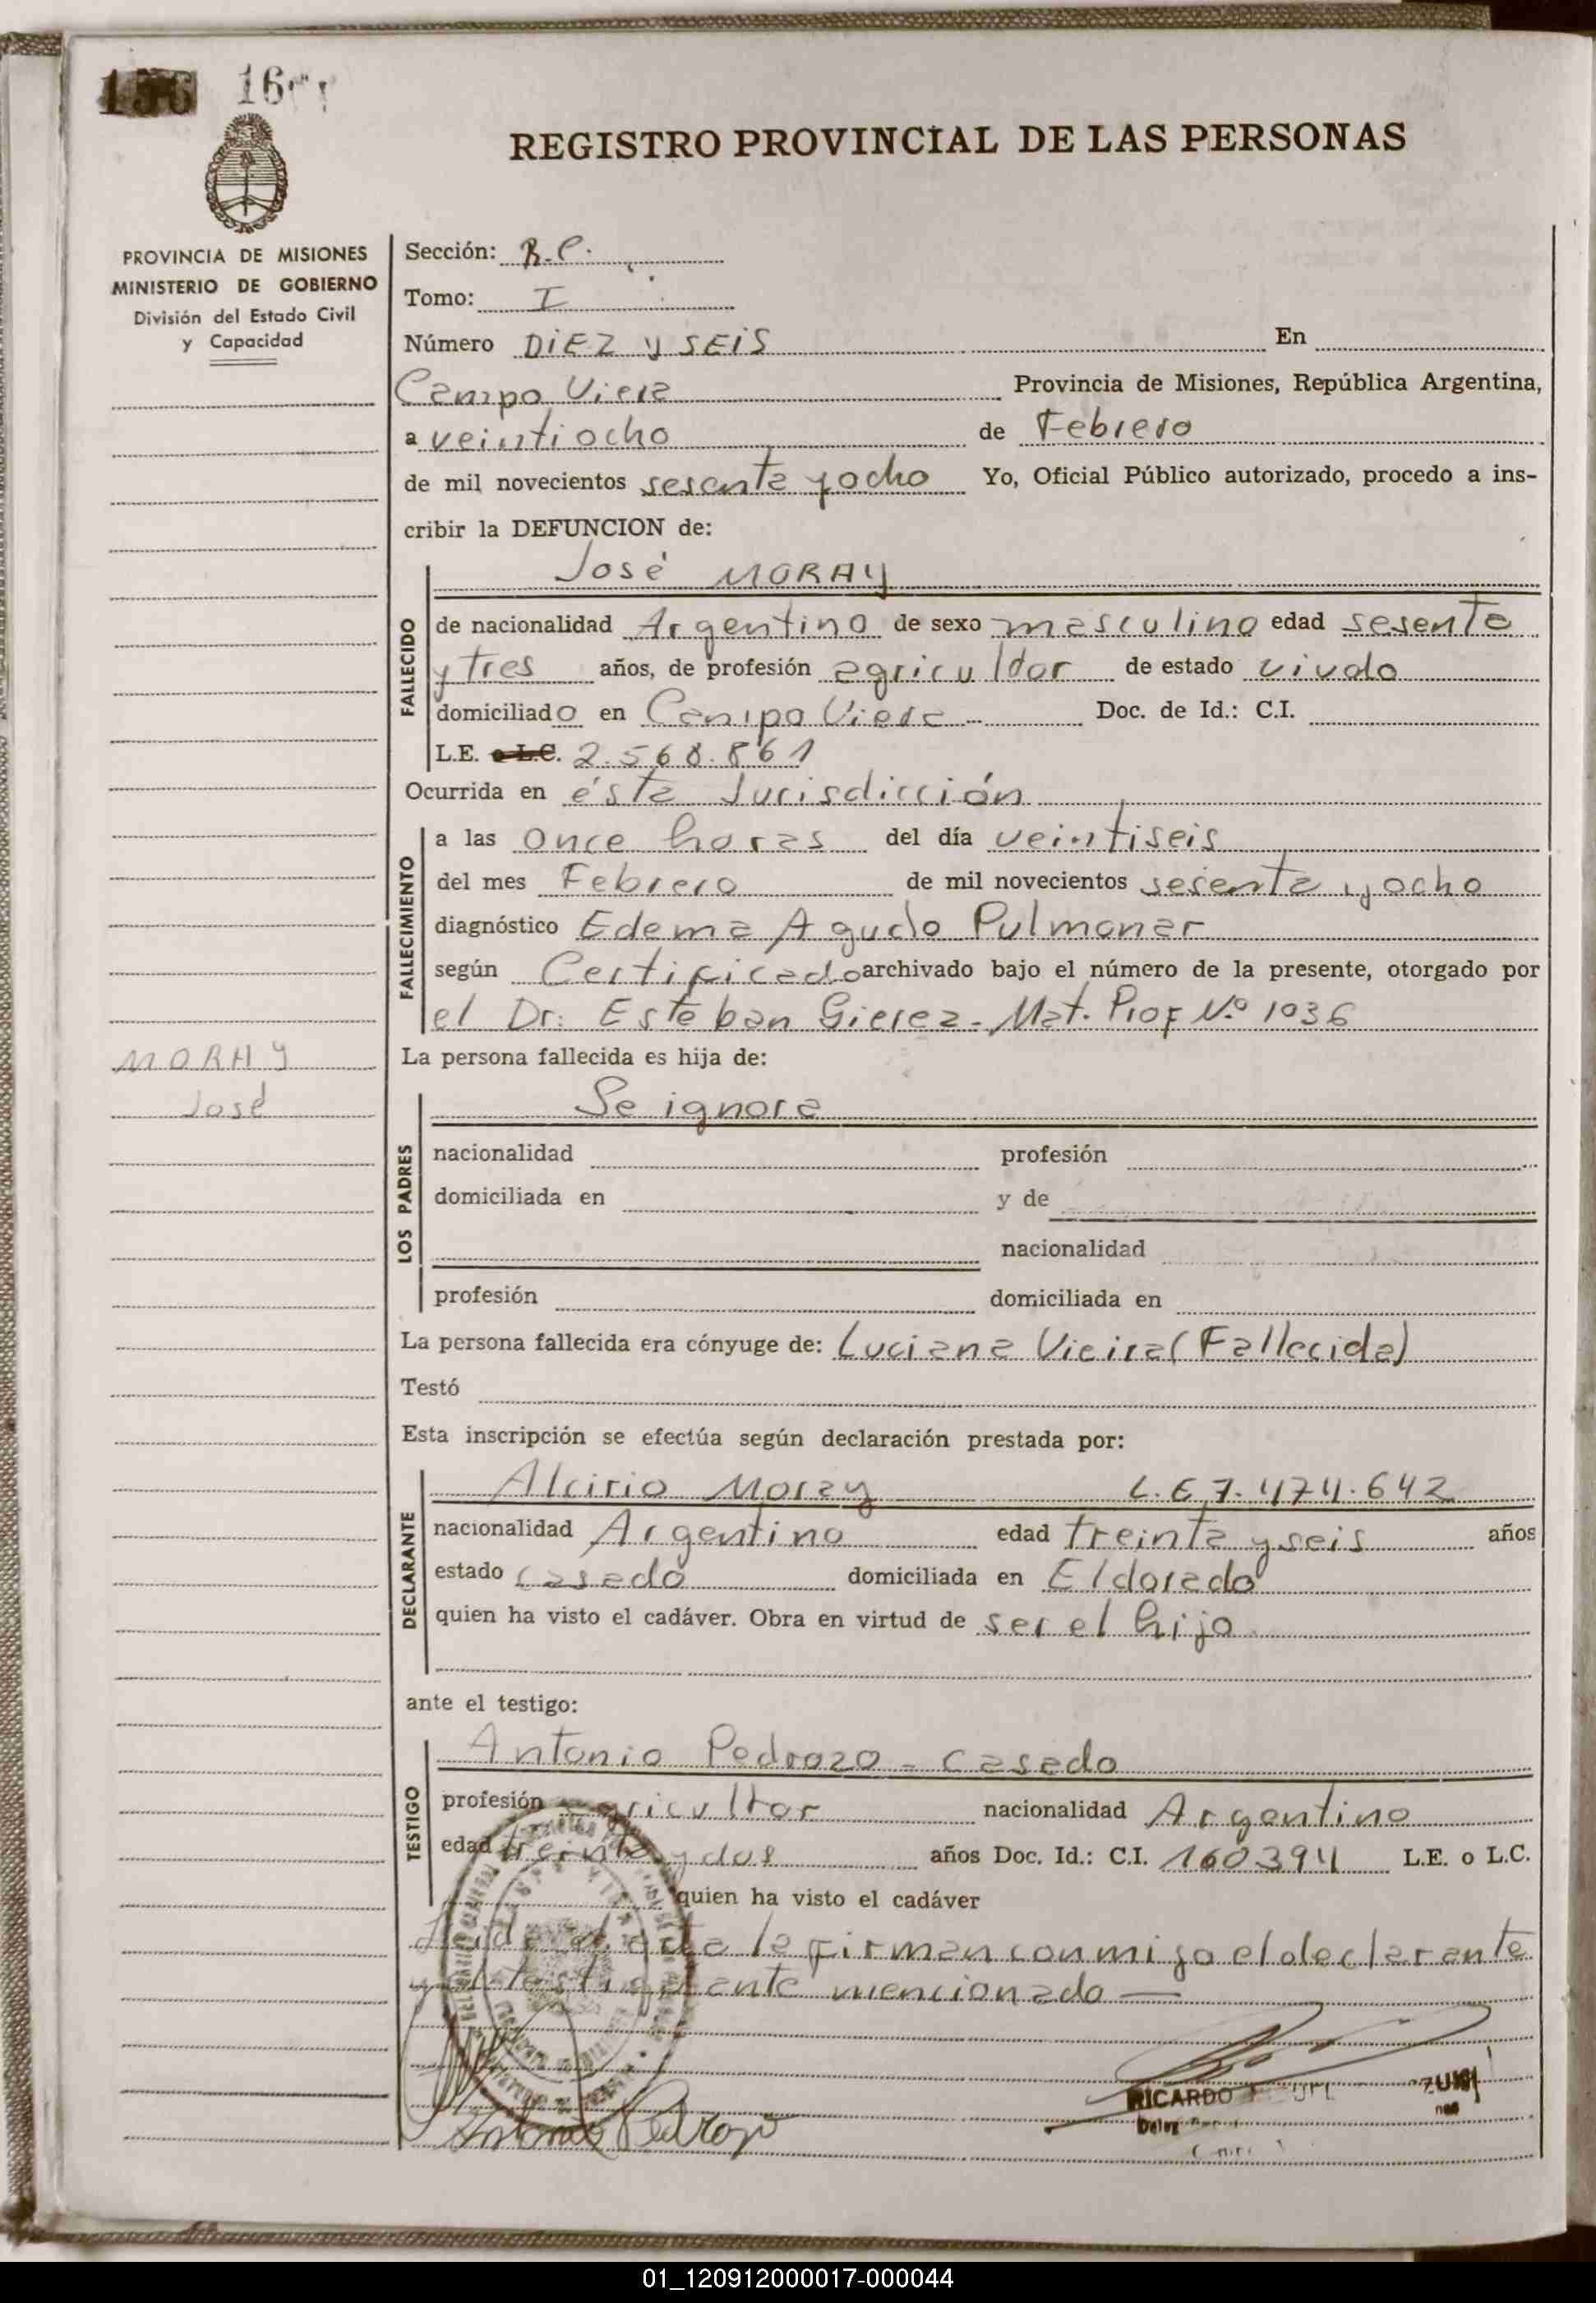 156
REGISTRO PROVINCIAL DE LAS PERSONAS
PROVINCIA DE MISIONES
MINISTERIO DE GOBIERNO
División del Estado Civil
y Capacidad
Sección: R.P.
Tomo: I
Número DiEZ y SEiS En
Campo Viera Provincia de Misiones, República Argentina,
a veintiocho de Febrero
de mil novecientos sesenta y ocho Yo, Oficial Público autorizado, procedo a ins-
cribir la DEFUNCION de:
FALLECIDO
José MORAY
de nacionalidad Argentino de sexo masculino edad sesenta
y tres años, de profesión agricultor de estado viudo
domiciliado en Campo Viera Doc. de Id.: C.I.
L.E. o L.C. 2.568.861
Ocurrida en ésta Jurisdicción
FALLECIMIENTO
a las once horas del día veintiseis
del mes Febrero de mil novecientos sesenta y ocho
diagnóstico Edema Agudo Pulmonar
según Certificado archivado bajo el número de la presente, otorgado por
el Dr: Esteban Gierez - Mat. Prof Nº 1036
MORAY
José
La persona fallecida es hija de:
LOS PADRES
Se ignora
nacionalidad profesión
domiciliada en y de
nacionalidad
profesión domiciliada en
La persona fallecida era cónyuge de: Luciana Vieira (Fallecida)
Testó
Esta inscripción se efectúa según declaración prestada por:
DECLARANTE
Alcirio Moray L.E 7.474.642
nacionalidad Argentino edad treinta y seis años
estado casado domiciliada en Eldorado
quien ha visto el cadáver. Obra en virtud de ser el hijo
ante el testigo:
TESTIGO
Antonio Pedrozo - casado
profesión agricultor nacionalidad Argentino
edad treinta y dos años Doc. Id.: C.I. 160394 L.E. o L.C.
quien ha visto el cadáver
Leída el acta la firman conmigo el declarante
y el testigo ante mencionado —
RICARDO
Antonio Pedrozo
01_120912000017-000044